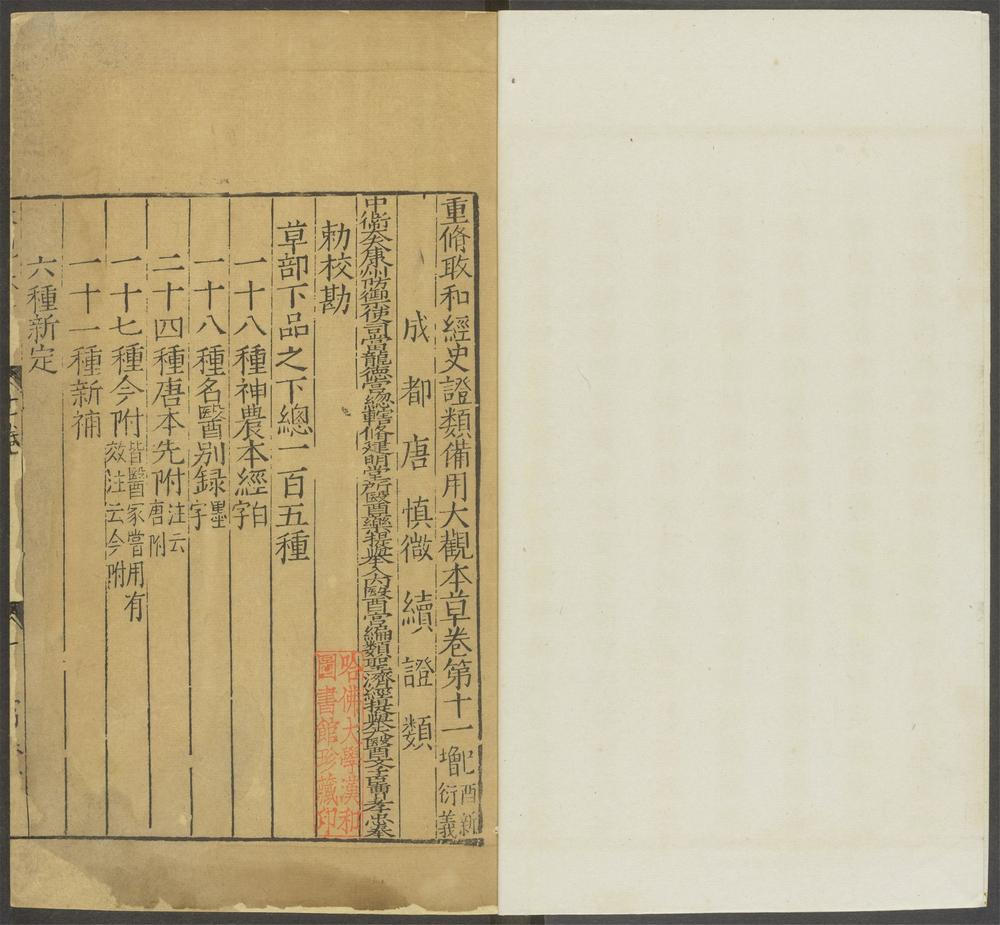 重脩政和經史證類備用大觀本草卷第十一己酉新增衍義
成都唐慎微續證類
中衛大夫康州防禦使句當龍德宮緫轄脩建明堂所醫藥提舉入內醫官編類聖濟經提舉太醫學臣曹孝忠奉
勑校勘
草部下品之下總一百五種
一十八種神農本經白字
一十八種名醫別録墨字
二十四種唐本先附注云唐附
一十七種今附皆醫家嘗用有效注云今附
一十一種新補
六種新定
哈佛大學漢和
圖書館珍藏印